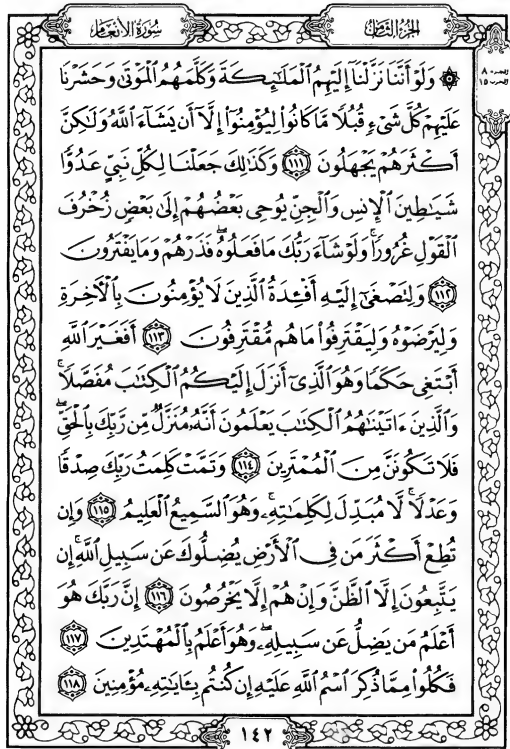 سُورَةُ الأَنْعَامِ
الجُزْءُ الثَّامِنُ
۞ وَلَوْ أَنَّنَا نَزَّلْنَا إِلَيْهِمُ الْمَلَٰٓئِكَةَ وَكَلَّمَهُمُ الْمَوْتَىٰ وَحَشَرْنَا
عَلَيْهِمْ كُلَّ شَىْءٍ قُبُلًا مَّا كَانُوا۟ لِيُؤْمِنُوٓا۟ إِلَّآ أَن يَشَآءَ ٱللَّهُ وَلَٰكِنَّ
أَكْثَرَهُمْ يَجْهَلُونَ ١١١ وَكَذَٰلِكَ جَعَلْنَا لِكُلِّ نَبِىٍّ عَدُوًّا
شَيَٰطِينَ ٱلْإِنسِ وَٱلْجِنِّ يُوحِى بَعْضُهُمْ إِلَىٰ بَعْضٍ زُخْرُفَ
ٱلْقَوْلِ غُرُورًا ۚ وَلَوْ شَآءَ رَبُّكَ مَا فَعَلُوهُ ۖ فَذَرْهُمْ وَمَا يَفْتَرُونَ
١١٢ وَلِتَصْغَىٰٓ إِلَيْهِ أَفْـِٔدَةُ ٱلَّذِينَ لَا يُؤْمِنُونَ بِٱلْءَاخِرَةِ
وَلِيَرْضَوْهُ وَلِيَقْتَرِفُوا۟ مَا هُم مُّقْتَرِفُونَ ١١٣ أَفَغَيْرَ ٱللَّهِ
أَبْتَغِى حَكَمًا وَهُوَ ٱلَّذِىٓ أَنزَلَ إِلَيْكُمُ ٱلْكِتَٰبَ مُفَصَّلًا ۚ
وَٱلَّذِينَ ءَاتَيْنَٰهُمُ ٱلْكِتَٰبَ يَعْلَمُونَ أَنَّهُۥ مُنَزَّلٌ مِّن رَّبِّكَ بِٱلْحَقِّ ۖ
فَلَا تَكُونَنَّ مِنَ ٱلْمُمْتَرِينَ ١١٤ وَتَمَّتْ كَلِمَتُ رَبِّكَ صِدْقًا
وَعَدْلًا ۚ لَّا مُبَدِّلَ لِكَلِمَٰتِهِۦ ۚ وَهُوَ ٱلسَّمِيعُ ٱلْعَلِيمُ ١١٥ وَإِن
تُطِعْ أَكْثَرَ مَن فِى ٱلْأَرْضِ يُضِلُّوكَ عَن سَبِيلِ ٱللَّهِ ۚ إِن
يَتَّبِعُونَ إِلَّا ٱلظَّنَّ وَإِنْ هُمْ إِلَّا يَخْرُصُونَ ١١٦ إِنَّ رَبَّكَ هُوَ
أَعْلَمُ مَن يَضِلُّ عَن سَبِيلِهِۦ ۖ وَهُوَ أَعْلَمُ بِٱلْمُهْتَدِينَ ١١٧
فَكُلُوا۟ مِمَّا ذُكِرَ ٱسْمُ ٱللَّهِ عَلَيْهِ إِن كُنتُم بِـَٔايَٰتِهِۦ مُؤْمِنِينَ ١١٨
١٤٢